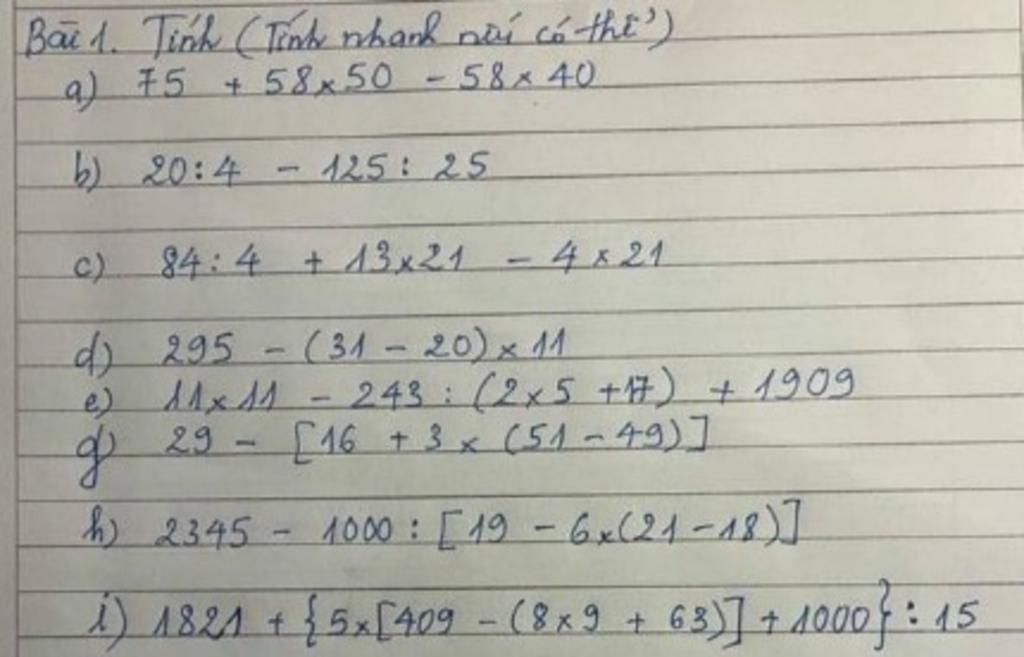 Bài 1. Tính (Tính nhanh nếu có thể)
a) 75 + 58 x 50 - 58 x 40
b) 20 : 4 - 125 : 25
c) 84 : 4 + 13 x 21 - 4 x 21
d) 295 - (31 - 20) x 11
e) 11 x 11 - 243 : (2 x 5 + 17) + 1909
g) 29 - [16 + 3 x (51 - 49)]
h) 2345 - 1000 : [19 - 6 x (21 - 18)]
i) 1821 + {5 x [409 - (8 x 9 + 63)] + 1000} : 15